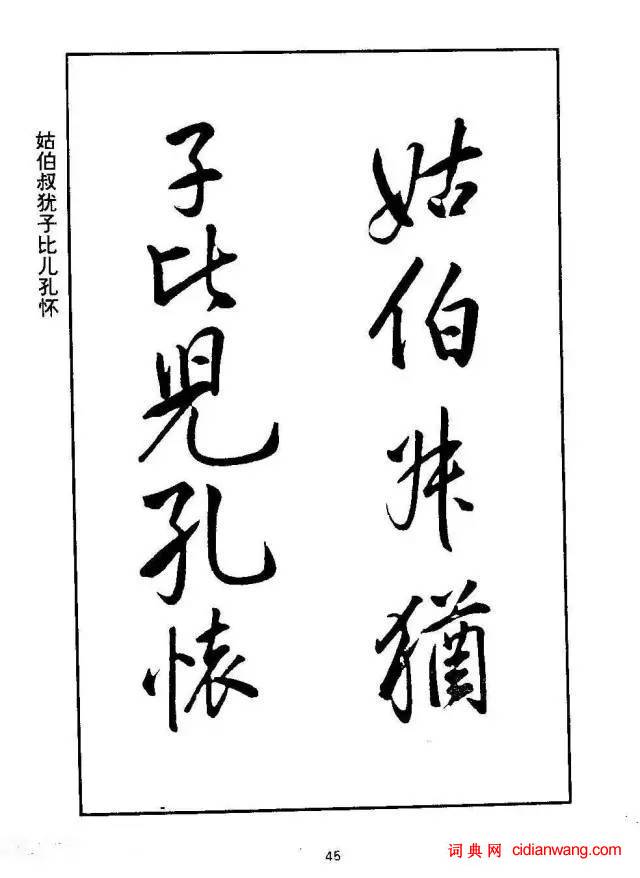 姑伯叔猶
子比兒孔懷
姑伯叔犹子比儿孔怀
45
词典网 cidianwang.com